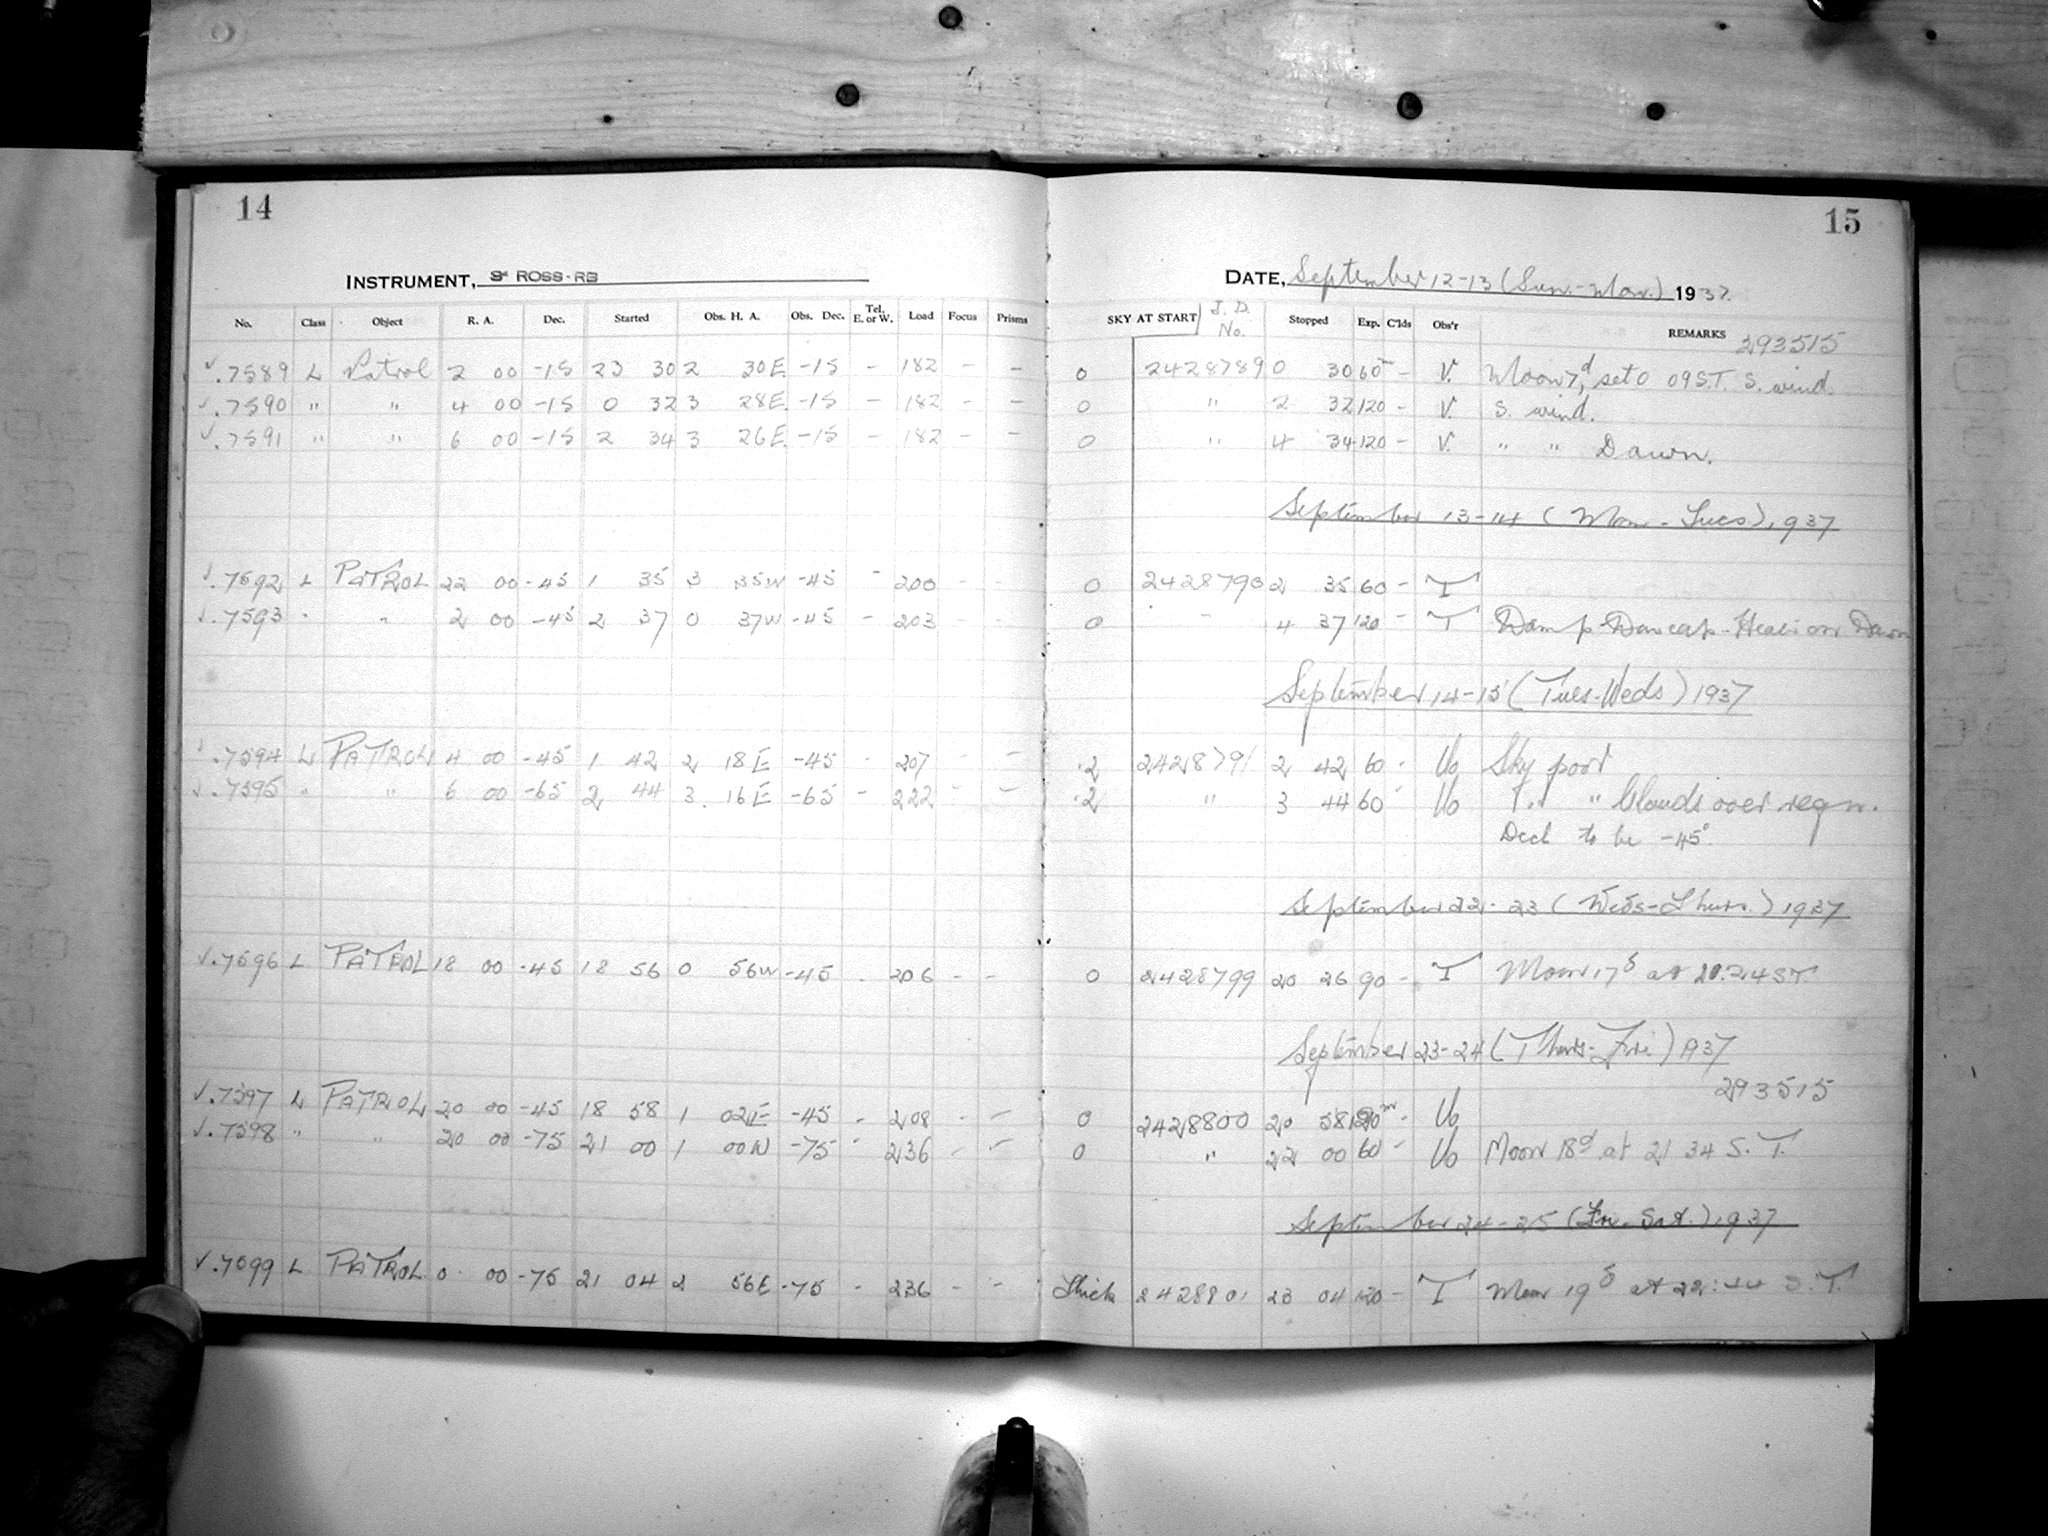 14
INSTRUMENT, 3" ROSS-RB
No. Class Object R. A. Dec. Started Obs. H. A. Obs. Dec. Tel. E. or W. Load Focus Prisms
√.7589 L Patrol 2 00 -15 23 30 2 30E -15 - 182 - -
√.7590 " " 4 00 -15 0 32 3 28E -15 - 182 - -
√.7591 " " 6 00 -15 2 34 3 26E -15 - 182 - -
√.7592 L PATROL 22 00 -45 1 35 3 35W -45 - 200 - -
√.7593 " " 2 00 -45 2 37 0 37W -45 - 203 - -
√.7594 L PATROL 4 00 -45 1 42 2 18E -45 - 207 - -
√.7595 " " 6 00 -65 2 44 3 16E -65 - 222 - -
√.7596 L PATROL 18 00 -45 18 56 0 56W -45 - 206 - -
√.7597 L PATROL 20 00 -45 18 58 1 02E -45 - 208 - -
√.7598 " " 20 00 -75 21 00 1 00W -75 - 236 - -
√.7599 L PATROL 0 00 -75 21 04 2 56E -75 - 236 - -
15
DATE, September 12-13 (Sun.-Mon.) 1937.
SKY AT START J. D. No. Stopped Exp. C'lds Obs'r REMARKS 293515
0 2428789 0 30 60m - V. Moon 7d, set 0 09 S.T. S. wind.
0 " 2 32 120 - V. S. wind.
0 " 4 34 120 - V. " " Dawn.
September 13-14 (Mon-Tues), 1937
0 2428790 2 35 60 - T
0 " 4 37 120 - T Damp Dewcap-Heater on Dawn
September 14-15 (Tues-Weds) 1937
.2 2428791 2 42 60 - Uo Sky poor
.2 " 3 44 60 - Uo " " Clouds over region.
Decl to be -45°.
September 22-23 (Weds-Thurs.) 1937
0 2428799 20 26 90 - T Moon 17d at 20:24 S.T.
September 23-24 (Thurs-Fri) 1937
293515
0 2428800 20 58 120m - Uo
0 " 22 00 60 - Uo Moon 18d at 21 34 S. T.
September 24-25 (Fri. Sat.) 1937
Thick 2428801 23 04 120 - T Moon 19d at 22:44 S.T.